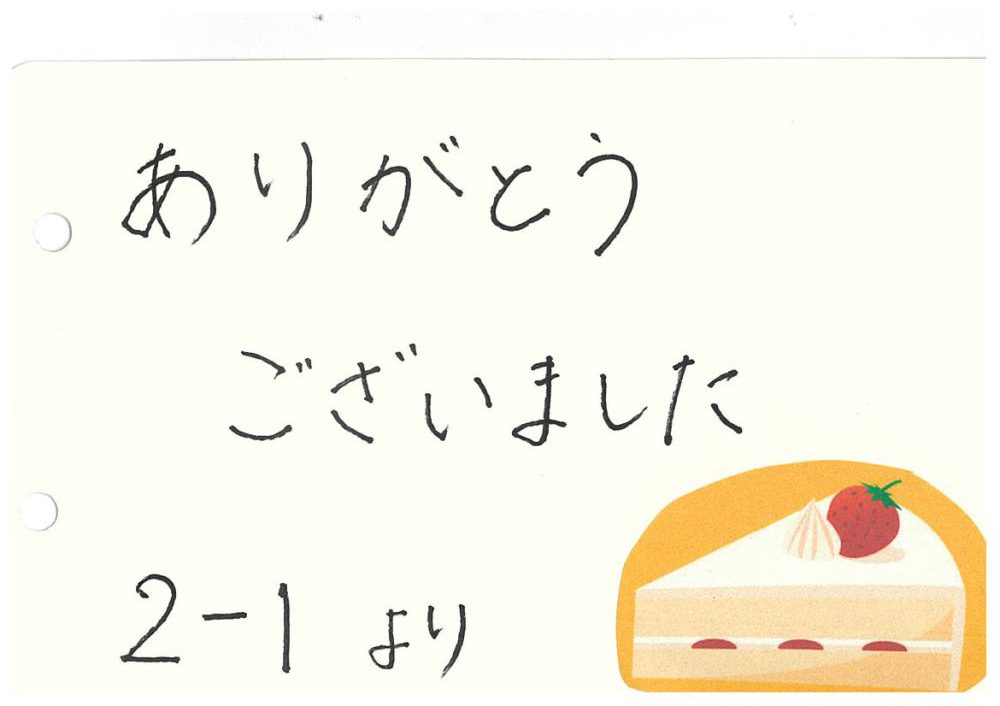 ありがとう
ございました
2-1 より